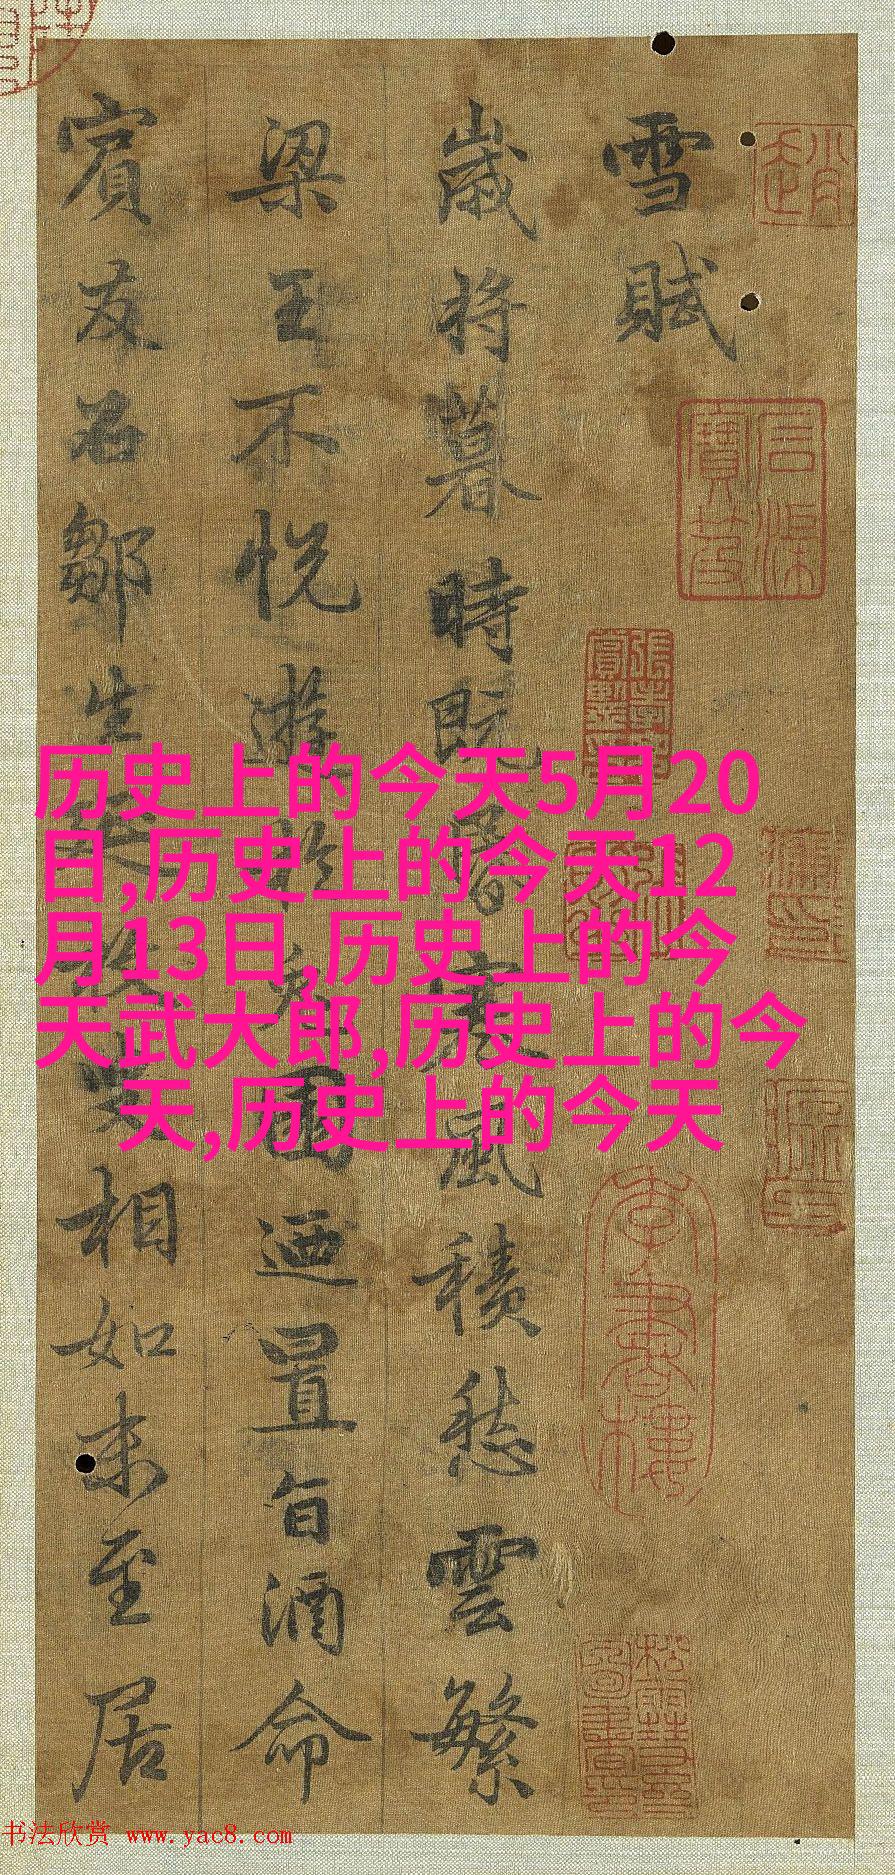 雪賦
歲将暮時既昏寒風積愁雲繁
梁王不悦遊於兔園迺置旨酒命
賓友召鄒生延枚叟相如末至居
历史上的今天5月20
日,历史上的今天12
月13日,历史上的今
天武大郎,历史上的今
天,历史上的今天
书法欣赏 www.yac8.com